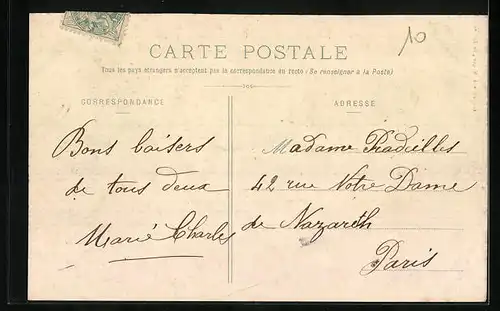 10
CARTE POSTALE
Tous les pays étrangers n'acceptent pas la correspondance au recto (Se renseigner à la Poste)
CORRESPONDANCE
ADRESSE
Bons baisers
de tous deux
Marie Charles
Madame
42 rue Notre Dame
de Nazareth
Paris